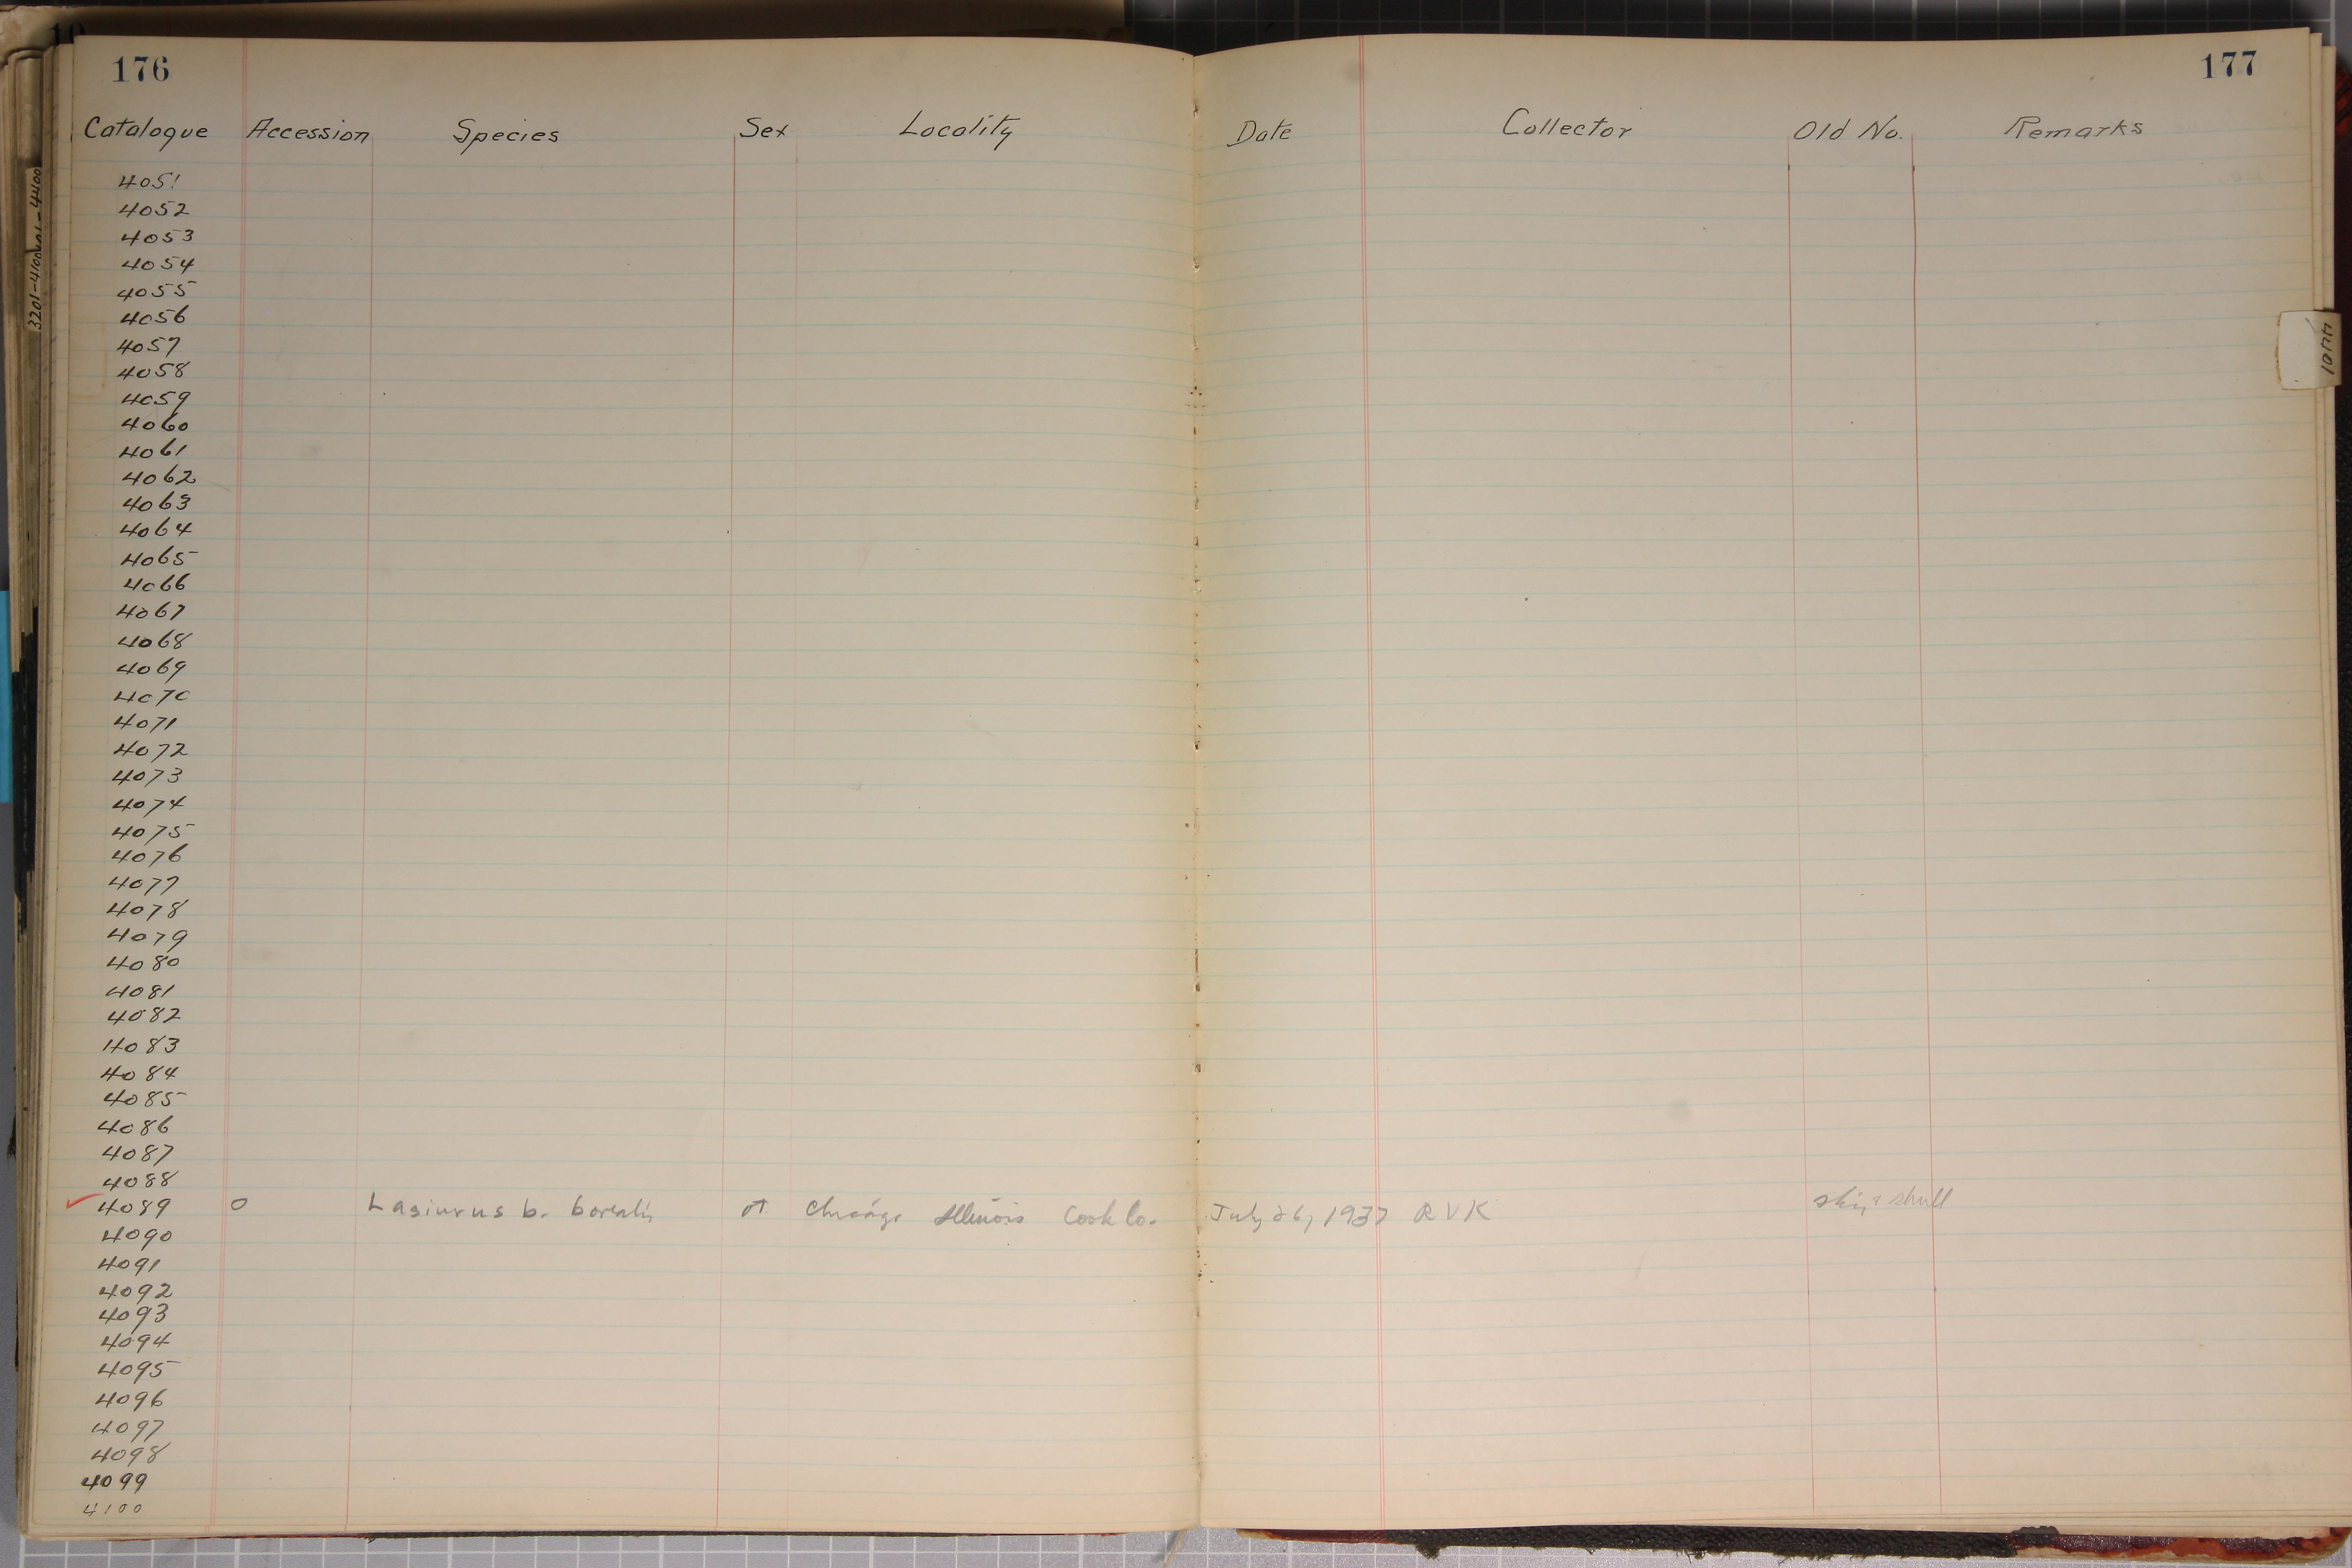 176
177
Catalogue Accession Species Sex Locality Date Collector Old No. Remarks
4051
4052
4053
4054
4055
4056
4057
4058
4059
4060
4061
4062
4063
4064
4065
4066
4067
4068
4069
4070
4071
4072
4073
4074
4075
4076
4077
4078
4079
4080
4081
4082
4083
4084
4085
4086
4087
4088
4089 0 Lasiurus b. borealis ♂ Chicago Illinois Cook Co. July 26, 1937 RVK skin & skull
4090
4091
4092
4093
4094
4095
4096
4097
4098
4099
4100
3201-4100
4401